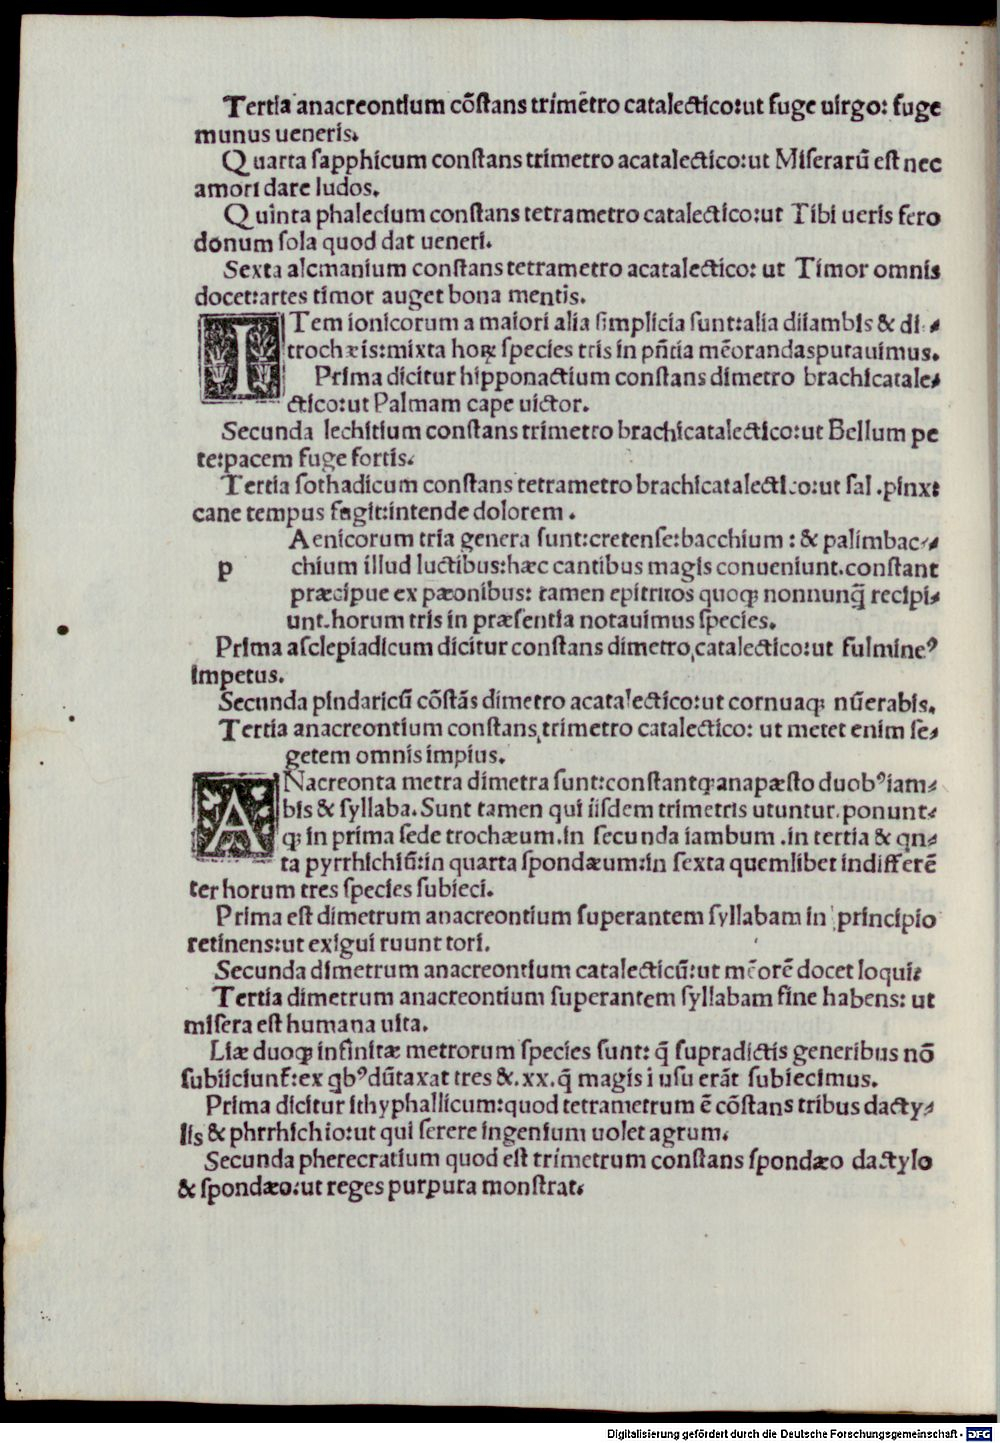 Tertia anacreontium cõſtans trimẽtro catalectico:ut fuge uirgo: fuge
munus ueneris.
Quarta ſapphicum conſtans trimetro acatalectico:ut Miſerarũ eſt nec
amori dare ludos.
Quinta phalecium conſtans tetrametro catalectico:ut Tibi ueris fero
donum ſola quod dat ueneri.
Sexta alcmanium conſtans tetrametro acatalectico: ut Timor omnis
docet:artes timor auget bona mentis.
ITem ionicorum a maiori alia ſimplicia ſunt:alia diiambis & di-
trochæis:mixta horꝝ ſpecies tris in pñtia mẽorandas putauimus.
Prima dicitur hipponactium conſtans dimetro brachicatale-
ctico:ut Palmam cape uictor.
Secunda lechitium conſtans trimetro brachicatalectico:ut Bellum pe
te:pacem fuge fortis.
Tertia ſothadicum conſtans tetrametro brachicatalectico:ut ſal .pinxt
cane tempus fugit:intende dolorem .
p Aenicorum tria genera ſunt:cretenſe:bacchium : & palimbac-
chium illud luctibus:hæc cantibus magis conueniunt.conſtant
præcipue ex pæonibus: tamen epitritos quoqꝫ nonnunq̃ recipi-
unt.horum tris in præſentia notauimus ſpecies.
Prima aſclepiadicum dicitur conſtans dimetro catalectico:ut fulmineꝰ
impetus.
Secunda pindaricũ cõſtãs dimetro acatalectico:ut cornuaqꝫ nũerabis.
Tertia anacreontium conſtans trimetro catalectico: ut metet enim ſe-
getem omnis impius.
ANacreonta metra dimetra ſunt:conſtantqꝫ anapæſto duobꝰ iam-
bis & ſyllaba. Sunt tamen qui iiſdem trimetris utuntur. ponunt-
qꝫ in prima ſede trochæum.in ſecunda iambum .in tertia & qn-
ta pyrrhichiũ:in quarta ſpondæum:in ſexta quemlibet indifferẽ
ter horum tres ſpecies ſubieci.
Prima eſt dimetrum anacreontium ſuperantem ſyllabam in principio
retinens:ut exigui ruunt tori.
Secunda dimetrum anacreontium catalecticũ:ut mẽorẽ docet loqui:
Tertia dimetrum anacreontium ſuperantem ſyllabam fine habens: ut
miſera eſt humana uita.
Liæ duoqꝫ infinitæ metrorum ſpecies ſunt: q̃ ſupradictis generibus nõ
ſubiiciunt̃: ex qbꝰ dũtaxat tres &. xx. q̃ magis i uſu erãt ſubiecimus.
Prima dicitur ithyphallicum:quod tetrametrum ẽ cõſtans tribus dacty-
lis & phrrhichio:ut qui ſerere ingenium uolet agrum.
Secunda pherecratium quod eſt trimetrum conſtans ſpondæo dactylo
& ſpondæo:ut reges purpura monſtrat.
Digitalisierung gefördert durch die Deutsche Forschungsgemeinschaft - DFG